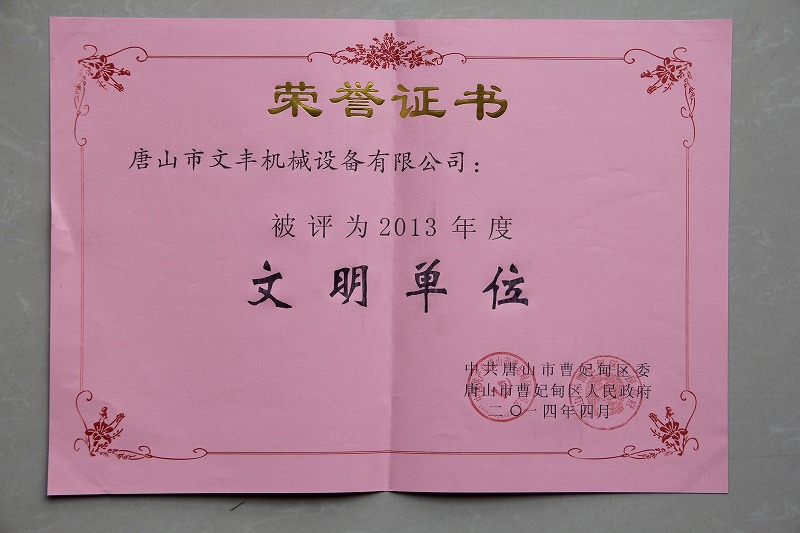 荣誉证书
唐山市文丰机械设备有限公司：
被评为2013年度
文明单位
中共唐山市曹妃甸区委
唐山市曹妃甸区人民政府
二〇一四年四月